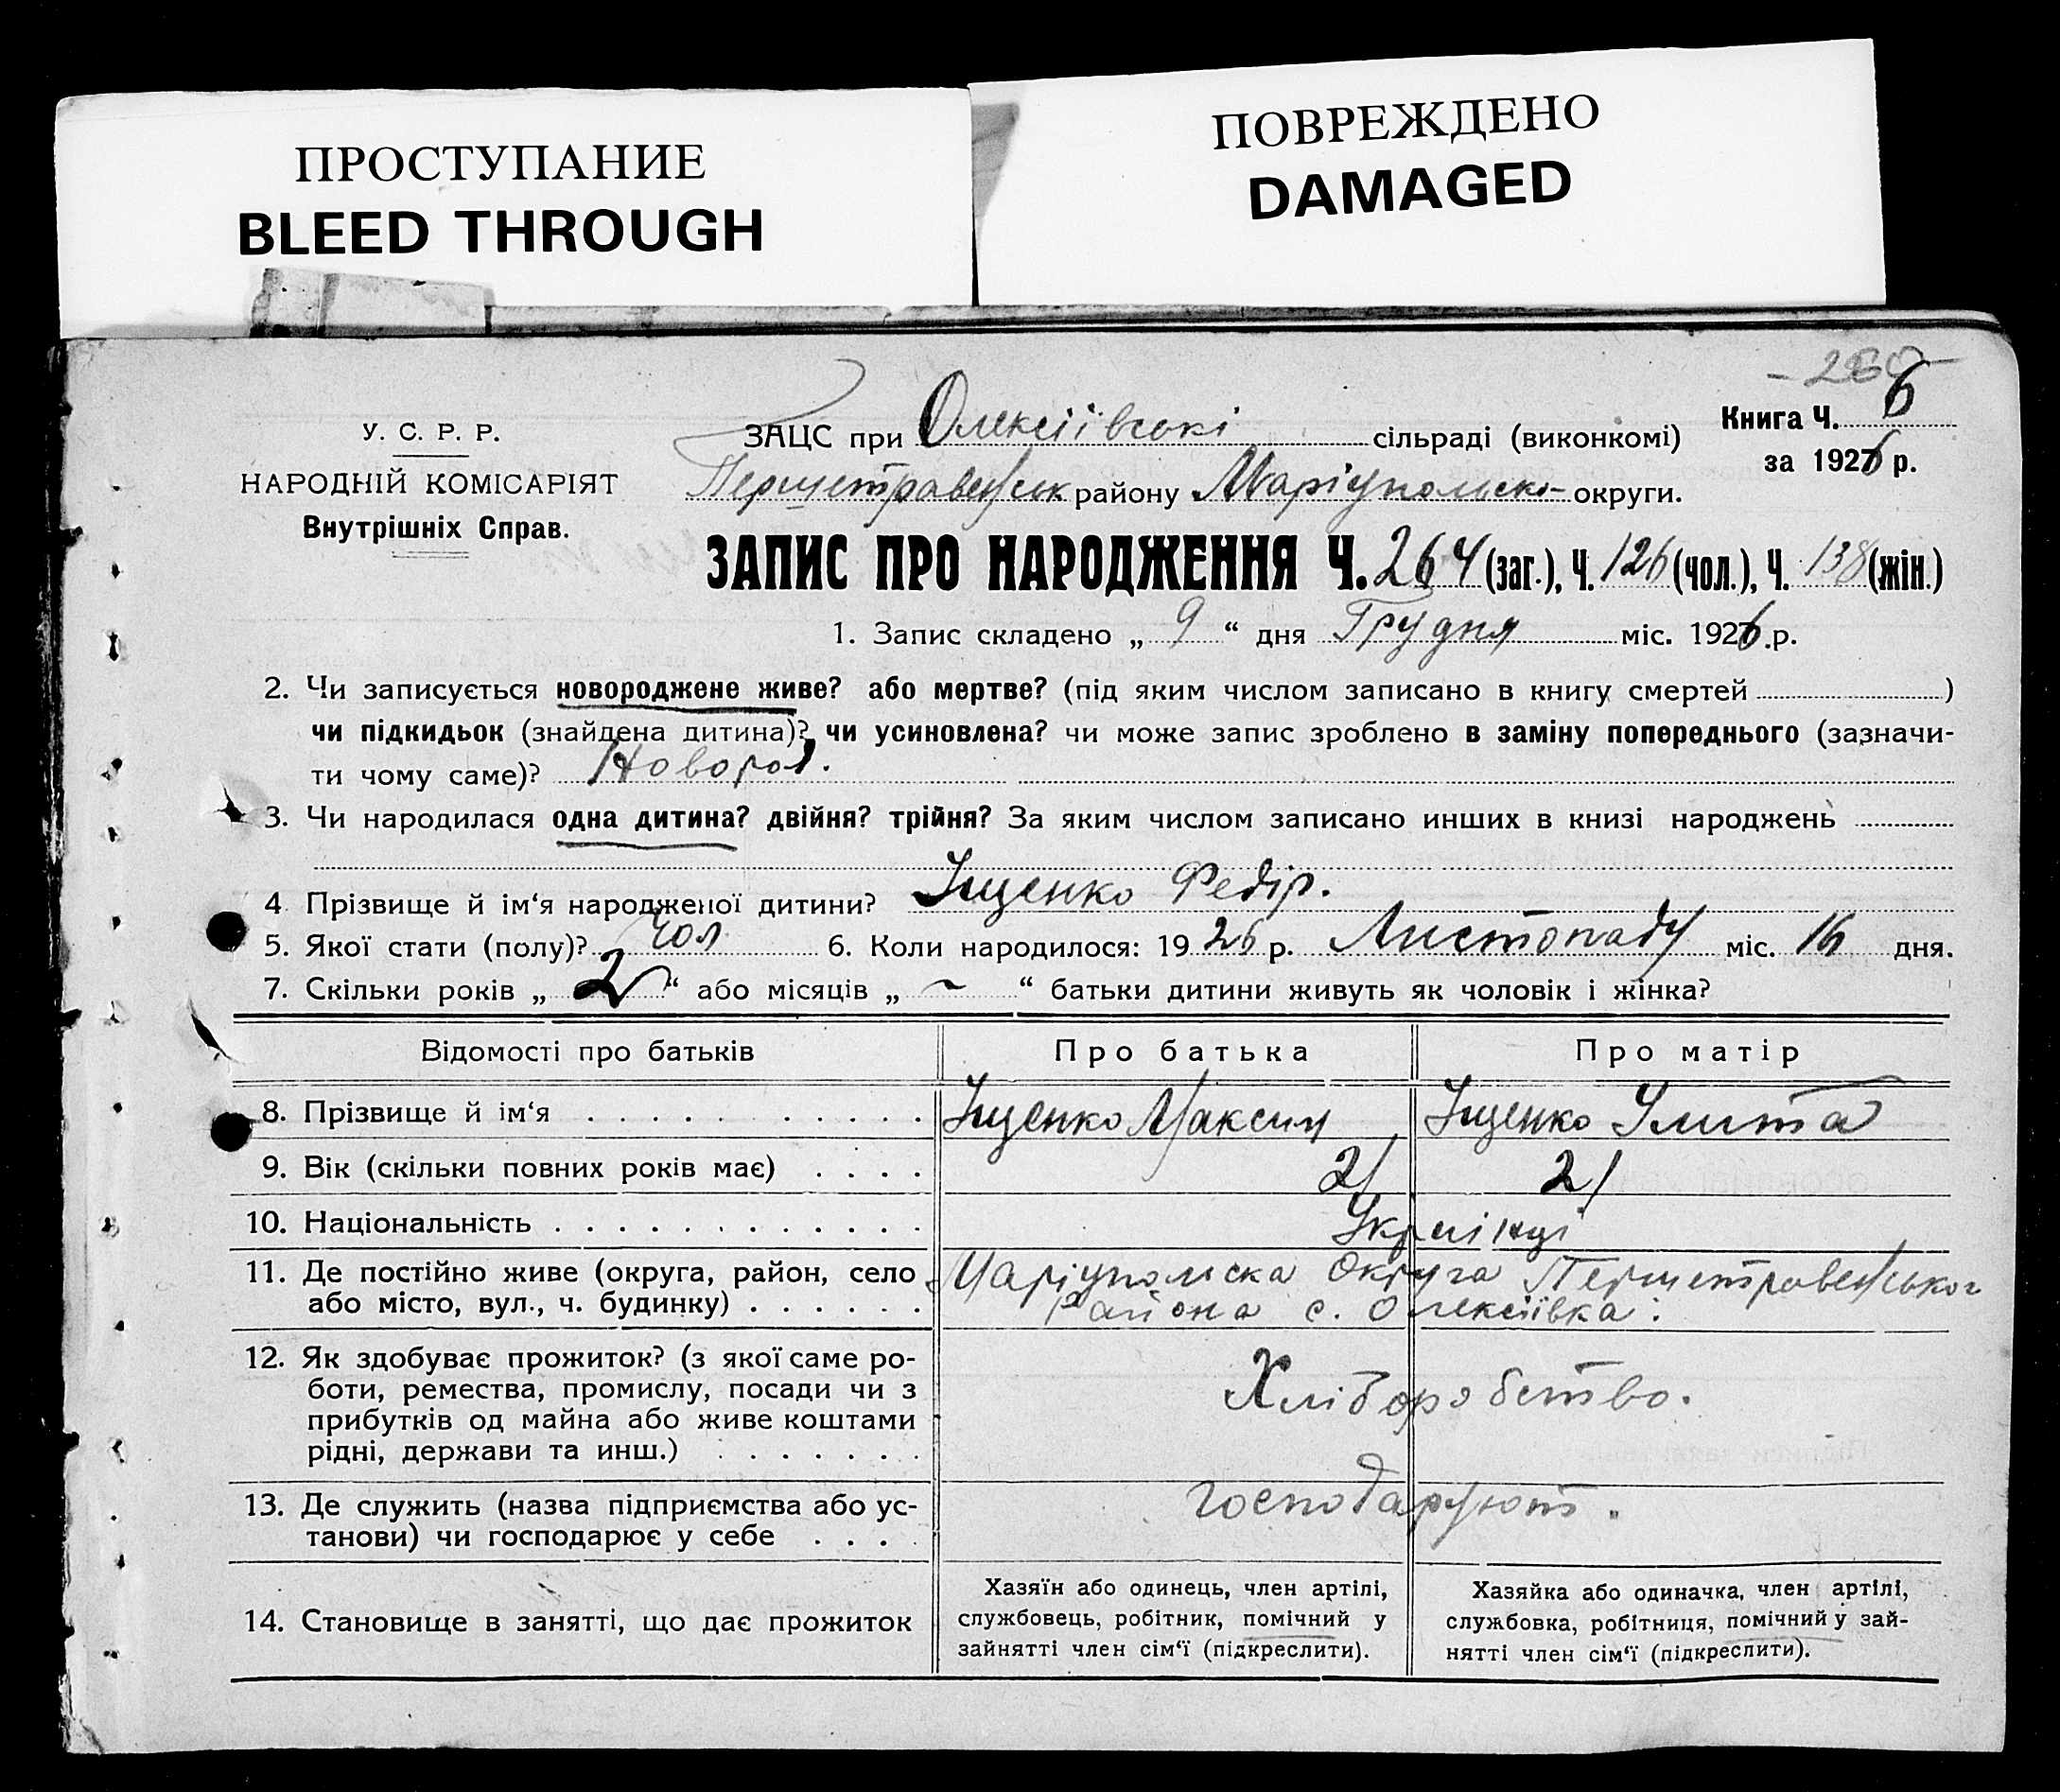 ПРОСТУПАНИЕ
BLEED THROUGH
ПОВРЕЖДЕНО
DAMAGED
У. С. Р. Р.
НАРОДНІЙ КОМІСАРІЯТ
Внутрішніх Справ.
ЗАЦС при Олексіївські сільраді (виконкомі)
Книга Ч. 6
за 1926 р.
Першетравенськ району Маріупольско- округи.
ЗАПИС ПРО НАРОДЖЕННЯ Ч. 264 (заг.), Ч. 126 (чол.), Ч. 138 (жін.)
1. Запис складено „ 9 “ дня Грудня міс. 1926.р.
2. Чи записується новороджене живе? або мертве? (під яким числом записано в книгу смертей )
чи підкидьок (знайдена дитина)? чи усиновлена? чи може запис зроблено в заміну попереднього (зазначи-
ти чому саме)? Новорол.
3. Чи народилася одна дитина? двійня? трійня? За яким числом записано инших в книзі народжень
4 Прізвище й ім‘я народженої дитини? Іщенко Федір.
5. Якої стати (полу)? Чол 6. Коли народилося: 19 26 р. Листопаду міс. 16 дня.
7. Скільки років „ 2 “ або місяців „ ~ “ батьки дитини живуть як чоловік і жінка?
Відомості про батьків Про батька Про матір
8. Прізвище й ім‘я Іщенко Максим Іщенко Улита
9. Вік (скільки повних років має) 21 21
10. Національність Українці
11. Де постійно живе (округа, район, село Маріупольска Округа Першетравенського
або місто, вул., ч. будинку) района с. Олексіївка.
12. Як здобуває прожиток? (з якої саме ро-
боти, ремества, промислу, посади чи з Хліборобство.
прибутків од майна або живе коштами
рідні, держави та инш.)
13. Де служить (назва підприємства або ус- господарюют.
танови) чи господарює у себе
14. Становище в занятті, що дає прожиток
Хазяїн або одинець, член артілі,
службовець, робітник, помічний у
зайнятті член сім‘ї (підкреслити).
Хазяйка або одиначка, член артілі,
службовка, робітниця, помічний у зай-
нятті член сім‘ї (підкреслити).